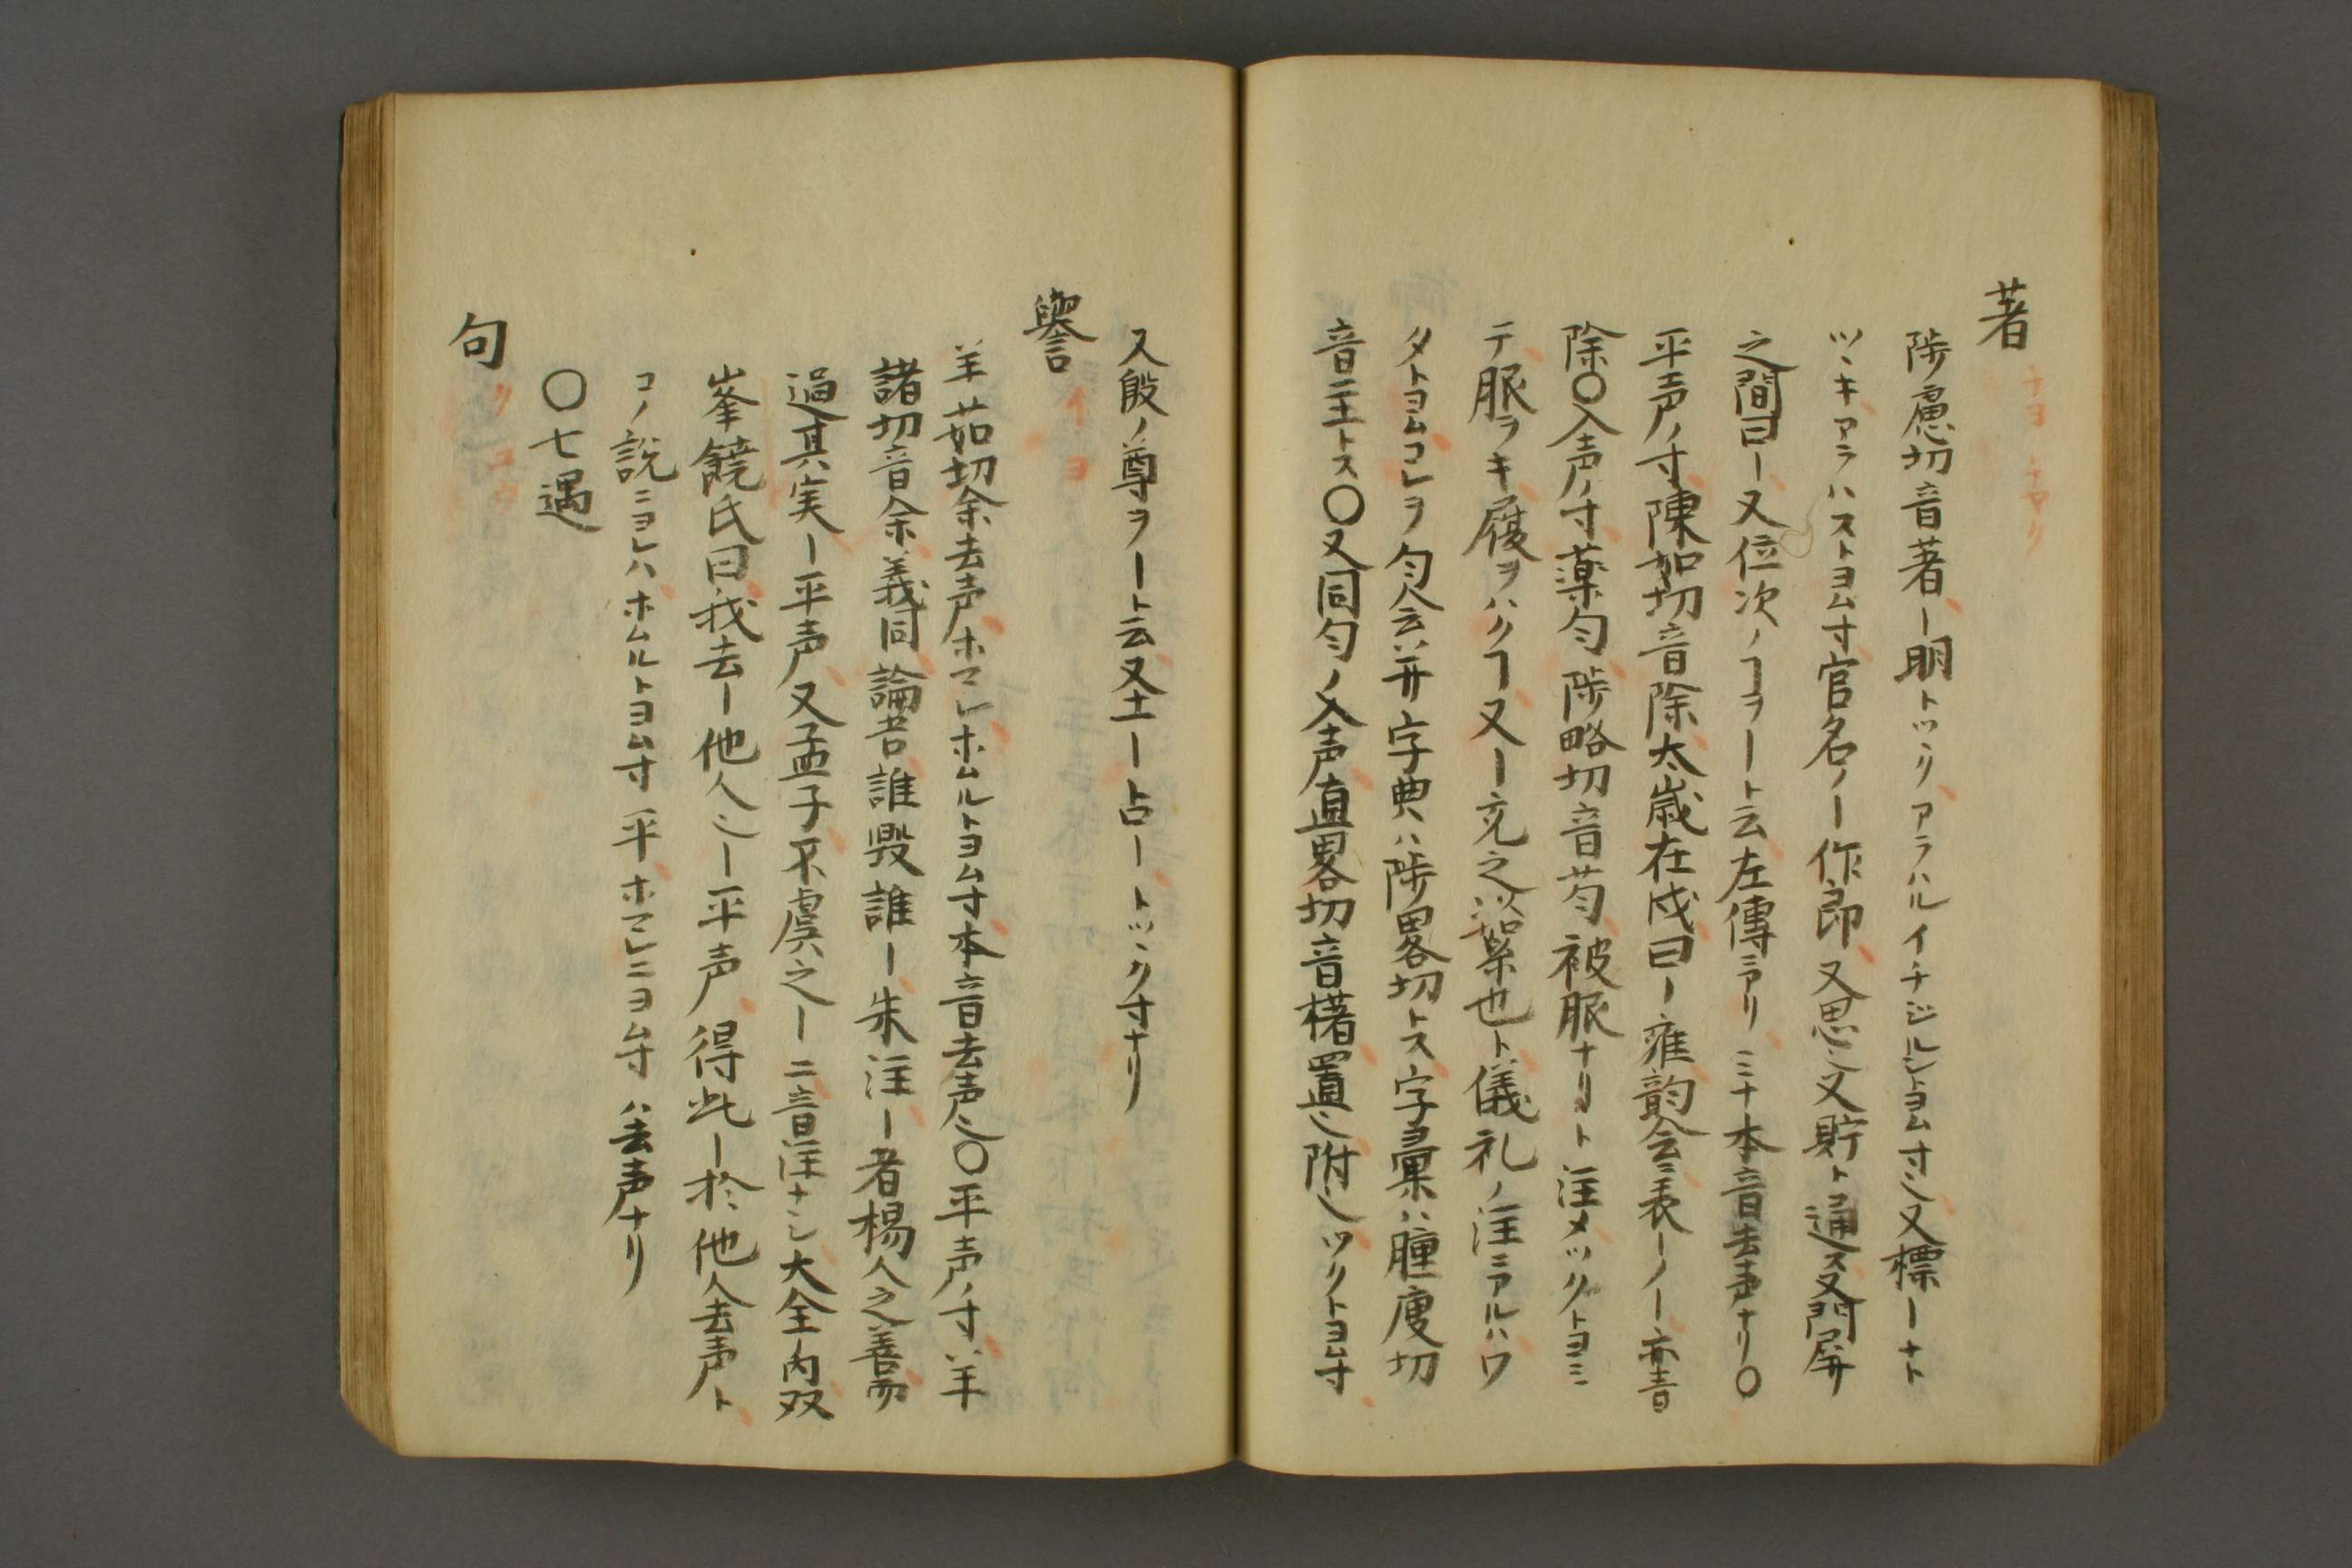 著 チヨ チヤク
陟慮切音著ー明トツヾクアラハルイチジルシトヨム寸ミ又標ーナト
ツヾキアラハストヨム寸官名ノー作郎又思ミ又貯ト通ス又門屏
之間曰ー又位次ノヿヲート云左傳ニアリミナ本音去声ナリ〇
平声ノ寸陳如切音除太歳在戊曰ー雍韵会ニ表ーノー亦音
除〇入声ノ寸薬匀陟略切音芍被服ナリト注メツクトヨミ
テ服ヲキ履ヲハクヿ又ー充之以絮也ト儀礼ノ注ニアルハワ
タトヨムコレヲ匀会并字典ハ陟畧切トス字彙ハ腫庾切
音主トス〇又同匀ノ入声直畧切音櫡置也附也ツクトヨム寸
又殷ノ尊ヲート云又土ー占ートツヾク寸ナリ
譽 イ ヨ
羊茹切余去声ホマレホムルトヨム寸本音去声也〇平声ノ寸羊
諸切音余義同論吾誰毀誰ー朱注ー者楊人之善而
過其実ー平声又孟子不虞之ー二音注ナシ大全内双
峯饒氏曰我去ー他人也ー平声得此ー於他人去声ト
コノ説ニヨレハホムルトヨム寸平ホマレニヨム寸ハ去声ナリ
〇七遇
句 ク コウ